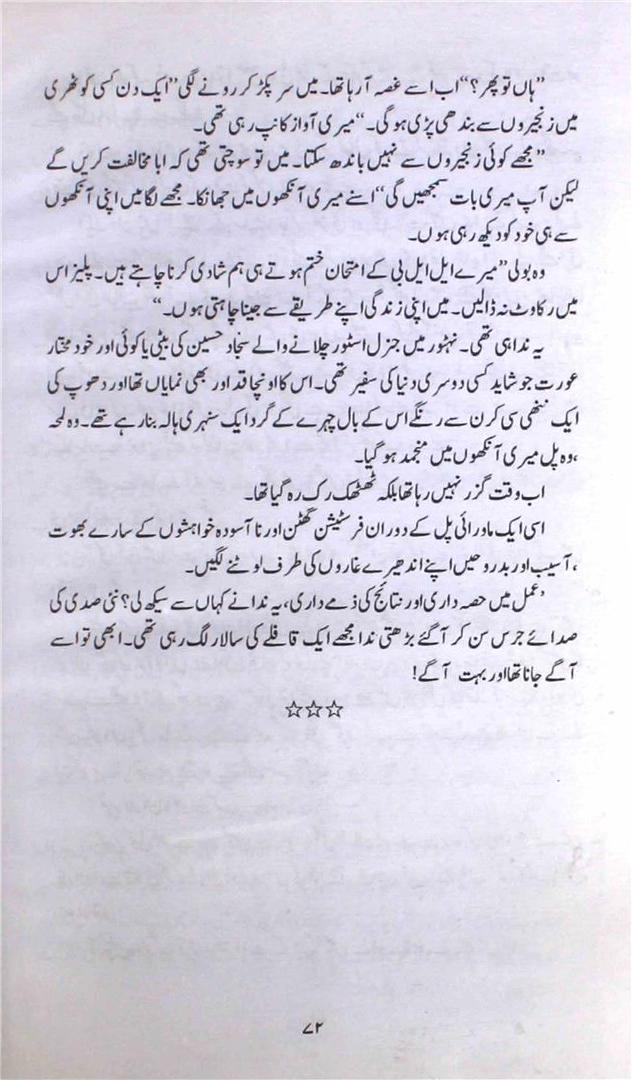 ”ہاں تو پھر؟“ اب اسے غصہ آرہا تھا۔ میں سر پکڑ کر رونے لگی ”ایک دن کسی کوٹھری
میں زنجیروں سے بندھی پڑی ہوگی۔“ میری آواز کانپ رہی تھی۔
”مجھے کوئی زنجیروں سے نہیں باندھ سکتا۔ میں تو سوچتی تھی کہ ابا مخالفت کریں گے
لیکن آپ میری بات سمجھیں گی“ اسنے میری آنکھوں میں جھانکا۔ مجھے لگا میں اپنی آنکھوں
سے ہی خود کو دیکھ رہی ہوں۔
وہ بولی ”میرے ایل ایل بی کے امتحان ختم ہوتے ہی ہم شادی کرنا چاہتے ہیں۔ پلیز اس
میں رکاوٹ نہ ڈالیں۔ میں اپنی زندگی اپنے طریقے سے جینا چاہتی ہوں۔“
یہ ندا ہی تھی۔ نہٹور میں جنرل اسٹور چلانے والے سجاد حسین کی بیٹی یا کوئی اور خود مختار
عورت جو شاید کسی دوسری دنیا کی سفیر تھی۔ اس کا اونچا قد اور بھی نمایاں تھا اور دھوپ کی
ایک ننھی سی کرن سے رنگے اس کے بال چہرے کے گرد ایک سنہری ہالہ بنا رہے تھے۔ وہ لمحہ
،وہ پل میری آنکھوں میں منجمد ہوگیا۔
اب وقت گزر نہیں رہا تھا بلکہ ٹھٹھک رک رہ گیا تھا۔
اسی ایک ماورائی پل کے دوران فرسٹیشن گھٹن اور نا آسودہ خواہشوں کے سارے بھوت
،آسیب اور بدروحیں اپنے اندھیرے غاروں کی طرف لوٹنے لگیں۔
’عمل میں حصہ داری اور نتائج کی ذمے داری، یہ ندا نے کہاں سے سیکھ لی؟ نئی صدی کی
صدائے جرس سن کر آگے بڑھتی ندا مجھے ایک قافلے کی سالار لگ رہی تھی۔ ابھی تو اسے
آگے جانا تھا اور بہت آگے!
☆☆☆
۷۲